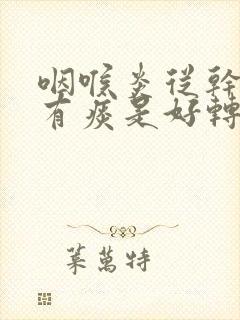 咽喉炎從幹
有痰是好轉
葉萬特